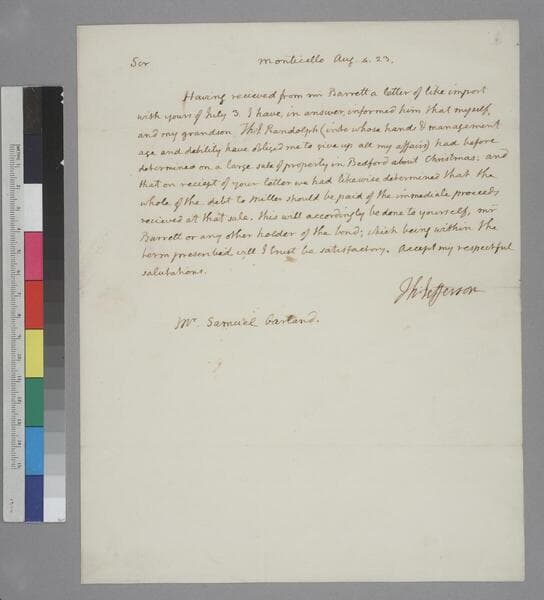 Sir Monticello Aug. 4. 23.
Having recieved from mr Barrett a letter of like import
with yours of July 3. I have, in answer, informed him that myself,
and my grandson Th: J Randolph (into whose hands & management
age and debility have obliged me to give up all my affairs) had before
determined on a large sale of property in Bedford about Christmas; and
that on reciept of your letter we had likewise determined that the
whole of the debt to Miller should be paid of the immediate proceeds
recieved at that sale. this will accordingly be done to yourself, mr
Barrett or any other holder of the bond; which being within the
term prescribed will I trust be satisfactory. Accept my respectful
salutations.
Th: Jefferson
Mr. Samuel Garland.